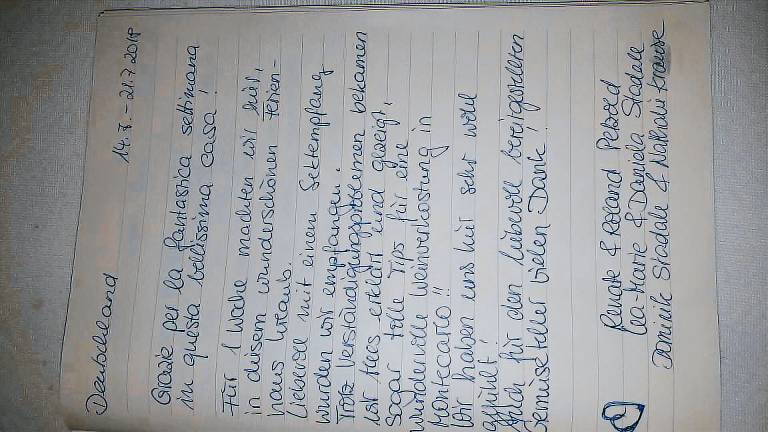 Deutschland
14.7. – 21.7.2018
Grazie per la fantastica settimana
in questa bellissima casa!
Für 1 Woche machten wir hier,
in diesem wunderschönen Ferien-
haus Urlaub.
Liebevoll mit einem Sektempfang
wurden wir empfangen.
Trotz Verständigungsproblemen bekamen
wir alles erklärt und gezeigt,
Sogar tolle Tips für eine
wundervolle Weinverkostung in
Montecarlo!!
Wir haben uns hier sehr wohl
gefühlt!
Auch für den liebevoll bereitgestellten
Gemüseteller vielen Dank!
Renate & Roland Petzold
Lea-Marie & Daniela Stadale
Dominik Stadale & Nathalie Krause